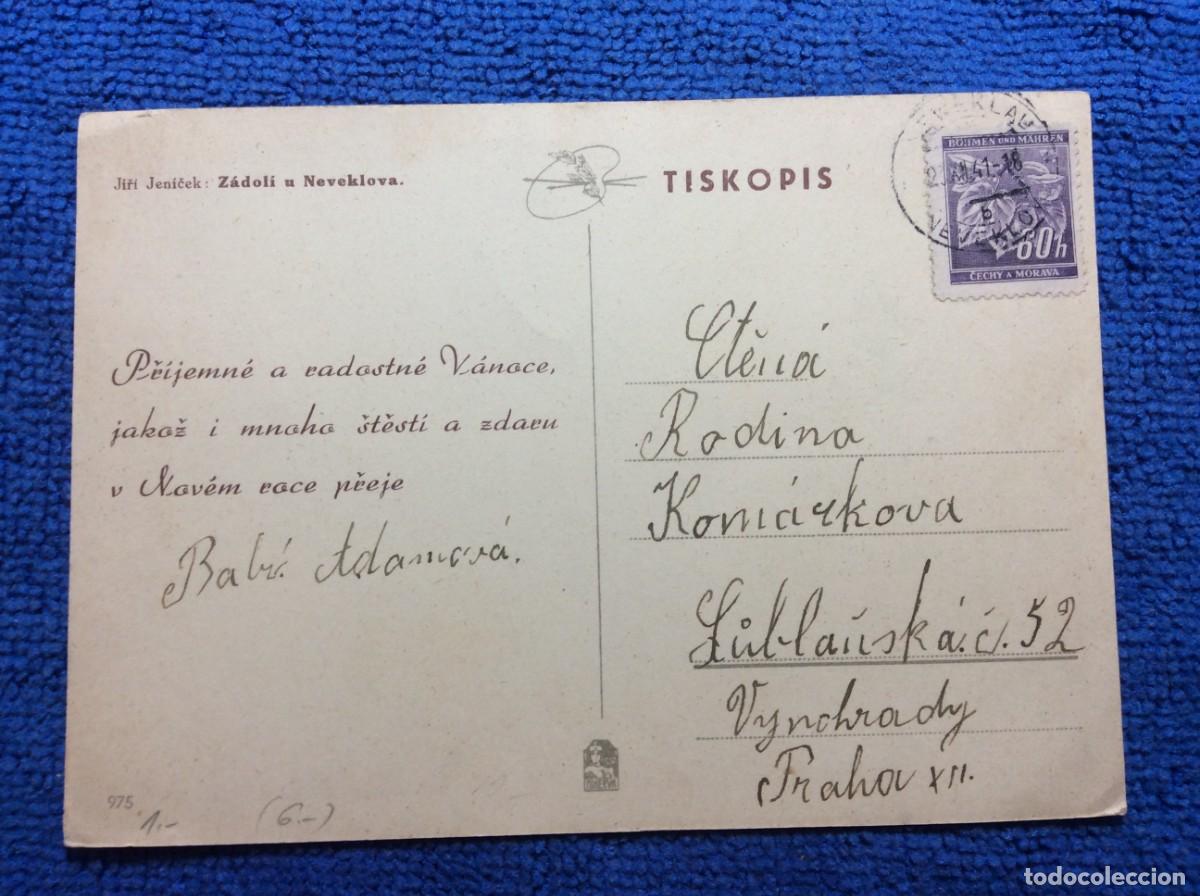 Jiří Jeníček: Zádolí u Neveklova.
TISKOPIS
NEVEKLAU
XII.41-18
b
NEVEKLOV
BÖHMEN UND MÄHREN
60h
ČECHY A MORAVA
Příjemné a radostné Vánoce,
jakož i mnoho štěstí a zdaru
v Novém roce přeje
Adamová.
Ctěná
Rodina
Komárkova
Lůblaňská.č.52
Vynohrady
Praha XII.
975
1.-
(6.-)
todocoleccion